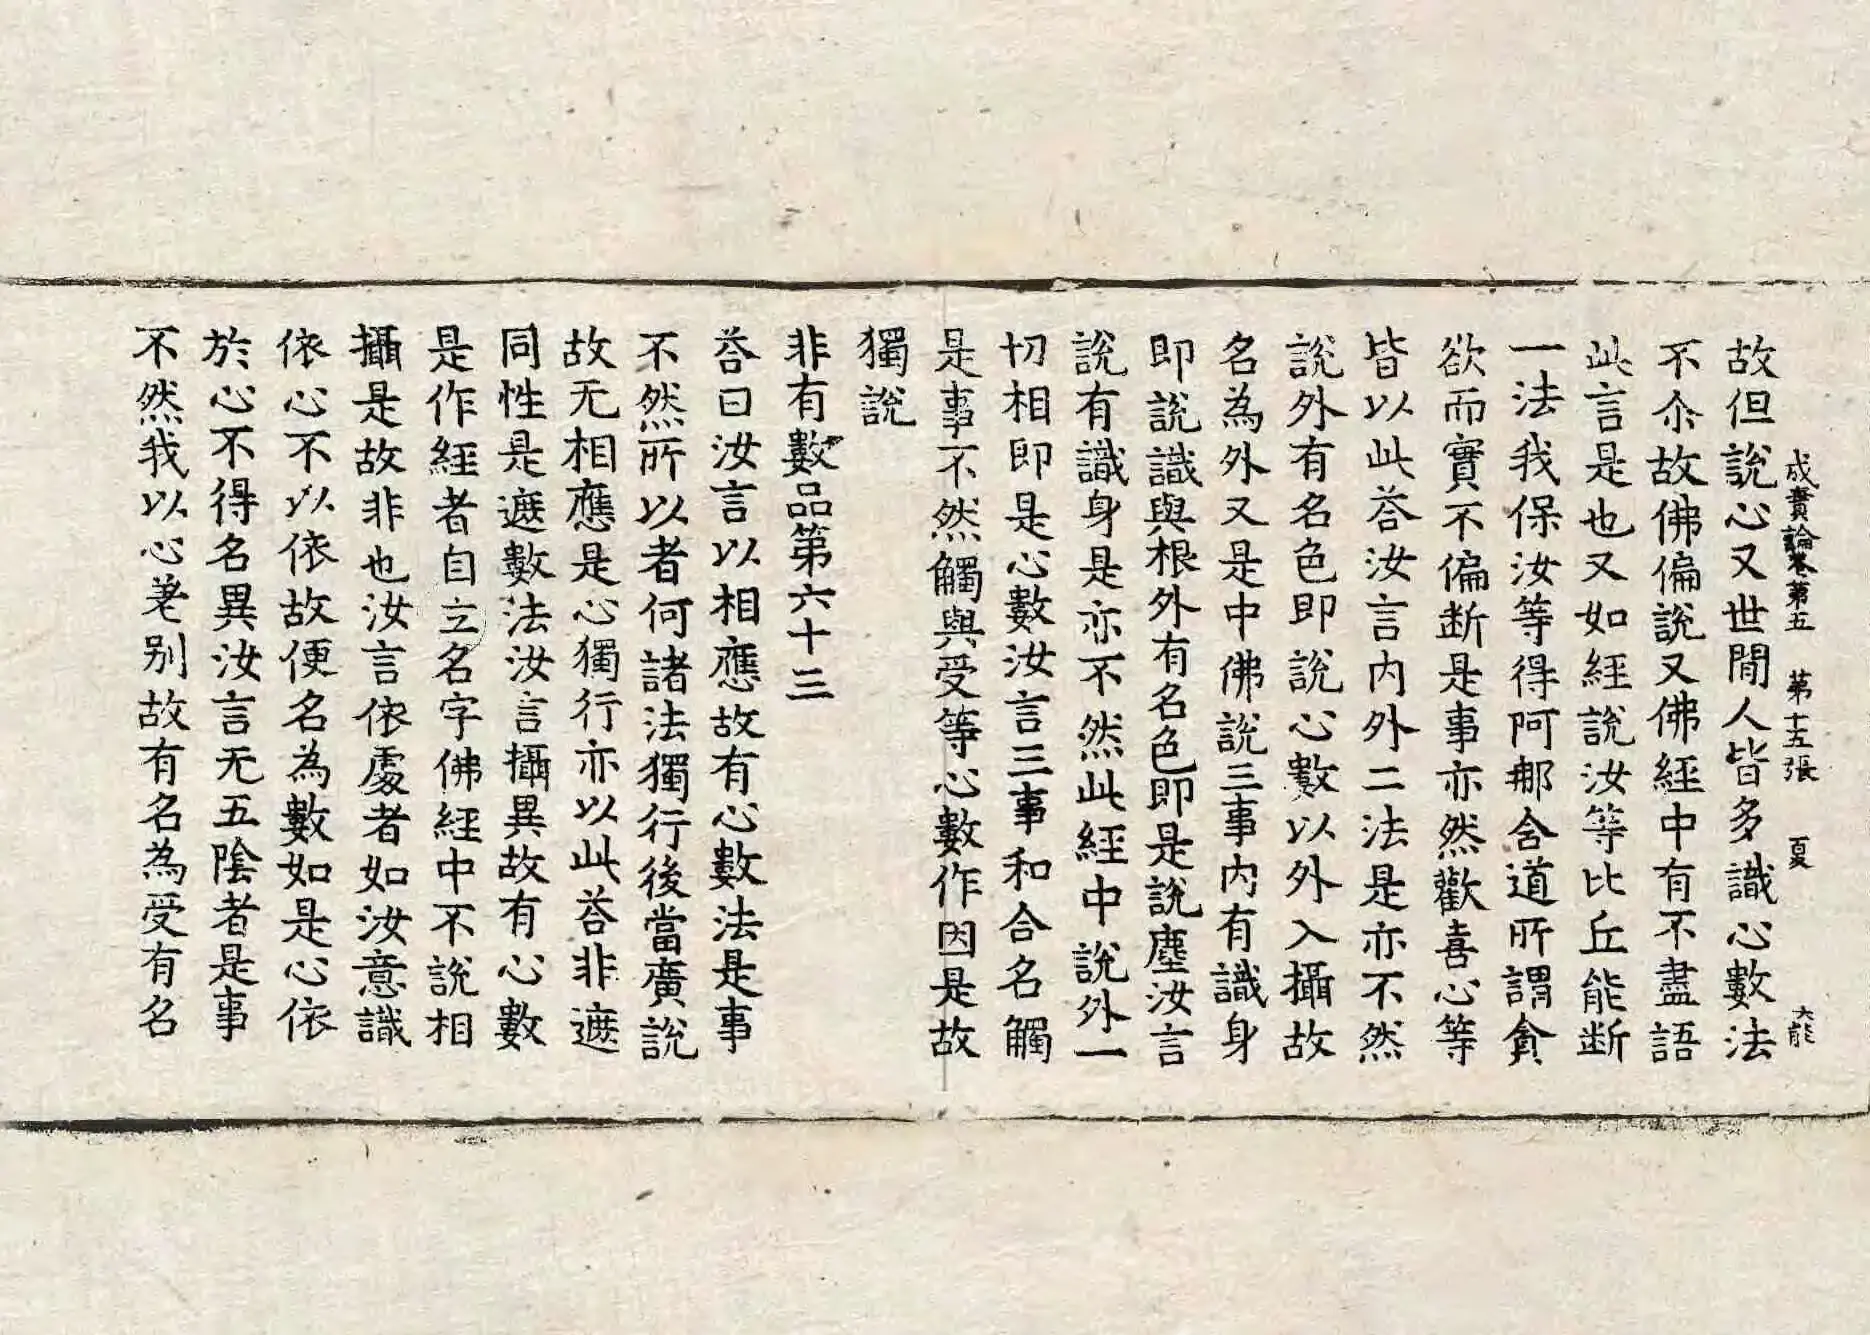 成實論卷第五　第十五張　夏　大能
故但說心又世間人皆多識心數法
不尒故佛偏說又佛經中有不盡語
此言是也又如經說汝等比丘能断
一法我保汝等得阿那含道所謂貪
欲而實不偏断是事亦然歡喜心等
皆以此荅汝言內外二法是亦不然
說外有名色即說心數以外入攝故
名為外又是中佛說三事內有識身
即說識與根外有名色即是說塵汝言
說有識身是亦不然此經中說外一
切相即是心數汝言三事和合名觸
是事不然觸與受等心數作因是故
獨說
非有數品第六十三
荅曰汝言以相應故有心數法是事
不然所以者何諸法獨行後當廣說
故无相應是心獨行亦以此荅非遮
同性是遮數法汝言攝異故有心數
是作經者自立名字佛經中不說相
攝是故非也汝言依處者如汝意識
依心不以依故便名為數如是心依
於心不得名異汝言无五陰者是事
不然我以心差别故有名為受有名